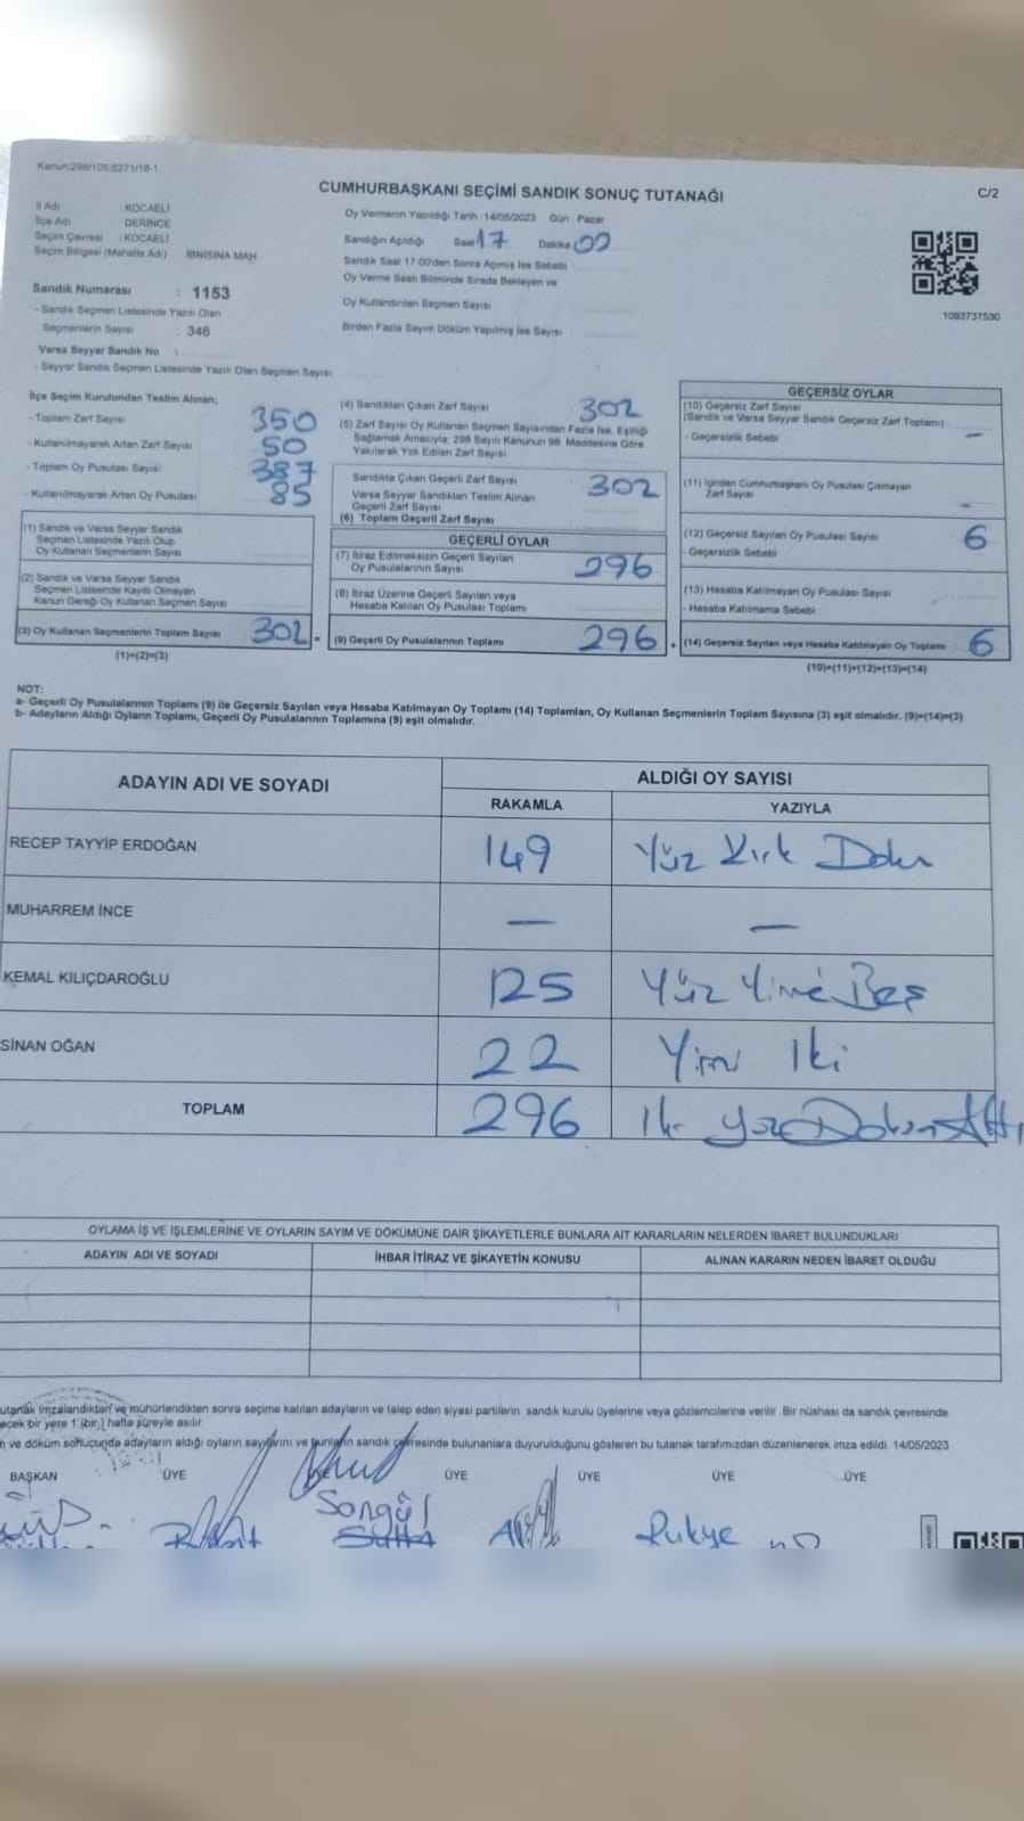 Kanun:298/105:6271/18-1
CUMHURBAŞKANI SEÇİMİ SANDIK SONUÇ TUTANAĞI
C/2
İl Adı : KOCAELİ
İlçe Adı : DERİNCE
Seçim Çevresi : KOCAELİ
Seçim Bölgesi (Mahalle Adı) : İBNİSİNA MAH
Sandık Numarası : 1153
- Sandık Seçmen Listesinde Yazılı Olan
Seçmenlerin Sayısı : 346
Varsa Seyyar Sandık No :
- Seyyar Sandık Seçmen Listesinde Yazılı Olan Seçmen Sayısı
Oy Vermenin Yapıldığı Tarih :14/05/2023 Gün : Pazar
Sandığın Açıldığı Saat 17 Dakika 00
Sandık Saat 17:00'den Sonra Açılmış İse Sebebi
Oy Verme Saati Bitiminde Sırada Bekleyen ve
Oy Kullandırılan Seçmen Sayısı
Birden Fazla Sayım Döküm Yapılmış İse Sayısı
1093737530
İlçe Seçim Kurulundan Teslim Alınan;
- Toplam Zarf Sayısı 350
- Kullanılmayarak Artan Zarf Sayısı 50
- Toplam Oy Pusulası Sayısı 387
- Kullanılmayarak Artan Oy Pusulası 85
(1) Sandık ve Varsa Seyyar Sandık
Seçmen Listesinde Yazılı Olup
Oy Kullanan Seçmenlerin Sayısı
(2) Sandık ve Varsa Seyyar Sandık
Seçmen Listesinde Kayıtlı Olmayan
Kanun Gereği Oy Kullanan Seçmen Sayısı
(3) Oy Kullanan Seçmenlerin Toplam Sayısı 302
(1)+(2)=(3)
(4) Sandıktan Çıkan Zarf Sayısı 302
(5) Zarf Sayısı Oy Kullanan Seçmen Sayısından Fazla İse, Eşitliği
Sağlamak Amacıyla; 298 Sayılı Kanunun 98. Maddesine Göre
Yakılarak Yok Edilen Zarf Sayısı
Sandıkta Çıkan Geçerli Zarf Sayısı 302
Varsa Seyyar Sandıktan Teslim Alınan
Geçerli Zarf Sayısı
(6) Toplam Geçerli Zarf Sayısı
GEÇERLİ OYLAR
(7) İtiraz Edilmeksizin Geçerli Sayılan
Oy Pusulalarının Sayısı 296
(8) İtiraz Üzerine Geçerli Sayılan veya
Hesaba Katılan Oy Pusulası Toplamı
(9) Geçerli Oy Pusulalarının Toplamı 296
GEÇERSİZ OYLAR
(10) Geçersiz Zarf Sayısı
(Sandık ve Varsa Seyyar Sandık Geçersiz Zarf Toplamı)
- Geçersizlik Sebebi —
(11) İçinden Cumhurbaşkanı Oy Pusulası Çıkmayan
Zarf Sayısı -
(12) Geçersiz Sayılan Oy Pusulası Sayısı 6
- Geçersizlik Sebebi
(13) Hesaba Katılmayan Oy Pusulası Sayısı
- Hesaba Katılmama Sebebi
(14) Geçersiz Sayılan veya Hesaba Katılmayan Oy Toplamı 6
(10)+(11)+(12)+(13)=(14)
NOT:
a- Geçerli Oy Pusulalarının Toplamı (9) ile Geçersiz Sayılan veya Hesaba Katılmayan Oy Toplamı (14) Toplamları, Oy Kullanan Seçmenlerin Toplam Sayısına (3) eşit olmalıdır. (9)+(14)=(3)
b- Adayların Aldığı Oyların Toplamı, Geçerli Oy Pusulalarının Toplamına (9) eşit olmalıdır.
ADAYIN ADI VE SOYADI
ALDIĞI OY SAYISI
RAKAMLA YAZIYLA
RECEP TAYYİP ERDOĞAN 149 Yüz Kırk Dokuz
MUHARREM İNCE — —
KEMAL KILIÇDAROĞLU 125 Yüz Yirmi Beş
SİNAN OĞAN 22 Yirmi İki
TOPLAM 296 İki Yüz Doksan Altı
OYLAMA İŞ VE İŞLEMLERİNE VE OYLARIN SAYIM VE DÖKÜMÜNE DAİR ŞİKAYETLERLE BUNLARA AİT KARARLARIN NELERDEN İBARET BULUNDUKLARI
ADAYIN ADI VE SOYADI İHBAR İTİRAZ VE ŞİKAYETİN KONUSU ALINAN KARARIN NEDEN İBARET OLDUĞU
utanak imzalandıktan ve mühürlendikten sonra seçime katılan adayların ve talep eden siyasi partilerin sandık kurulu üyelerine veya gözlemcilerine verilir. Bir nüshası da sandık çevresinde
ecek bir yere 1 (bir) hafta süreyle asılır.
n ve döküm sonucunda adayların aldığı oyların sayılarını ve bunların sandık çevresinde bulunanlara duyurulduğunu gösteren bu tutanak tarafımızdan düzenlenerek imza edildi. 14/05/2023
BAŞKAN ÜYE ÜYE ÜYE ÜYE ÜYE
Songül
Rukye